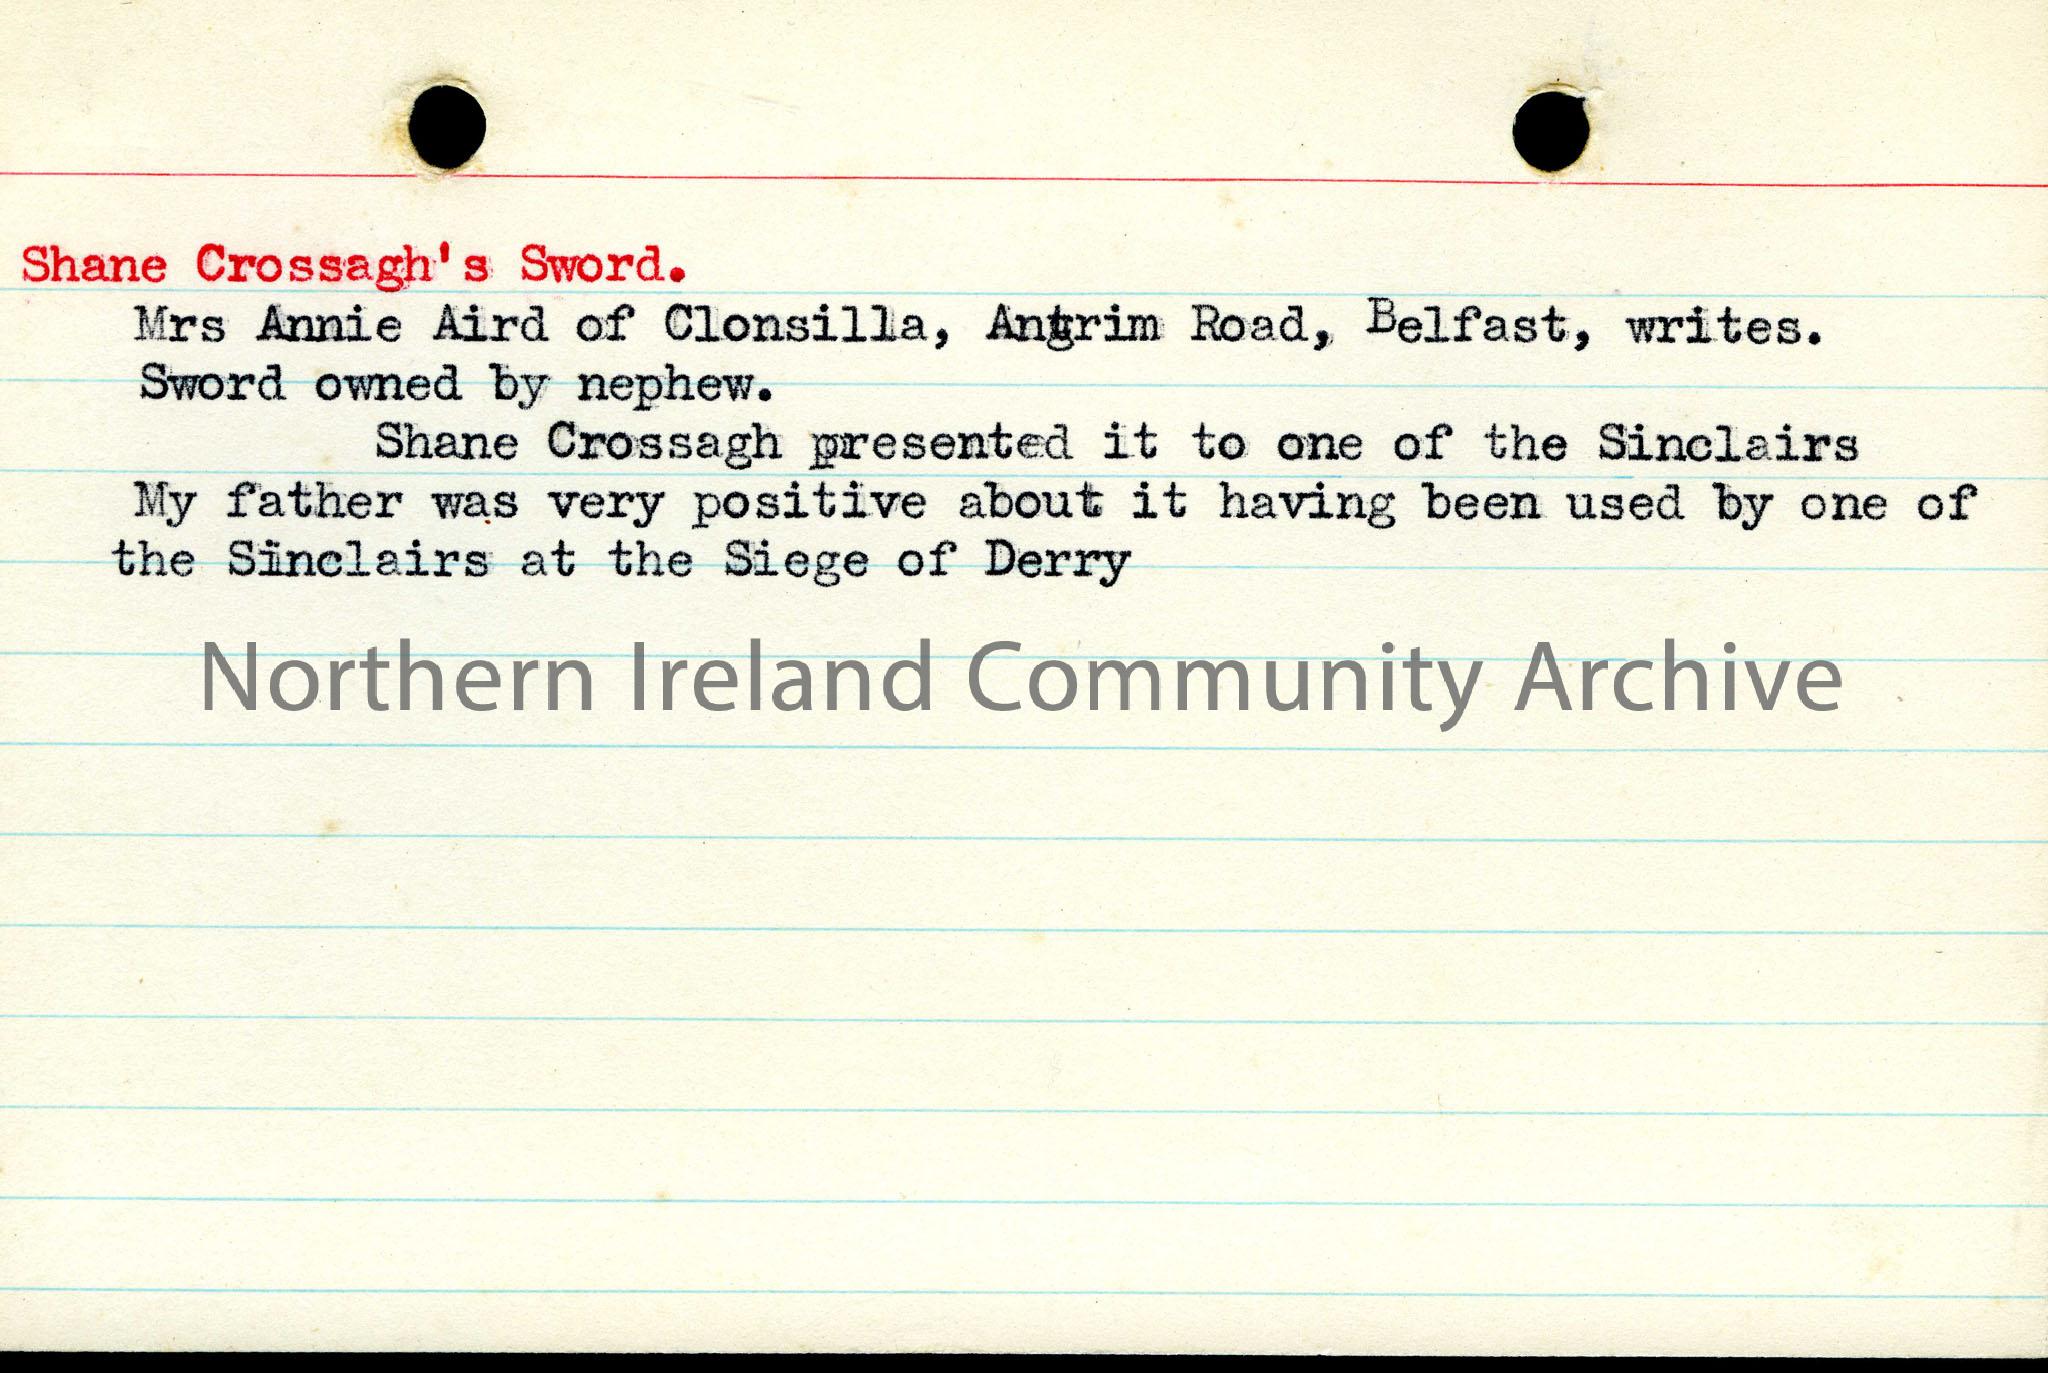 Shane Crossagh's Sword.
Mrs Annie Aird of Clonsilla, Antrim Road, Belfast, writes.
Sword owned by nephew.
Shane Crossagh presented it to one of the Sinclairs
My father was very positive about it having been used by one of
the Sinclairs at the Siege of Derry
Northern Ireland Community Archive